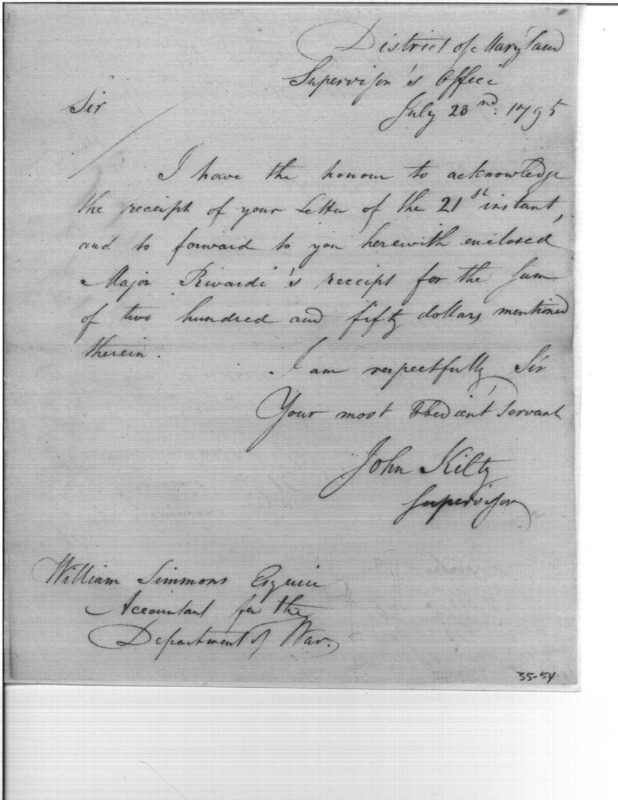 District of Maryland
Supervisor's Office
July 23nd: 1795
Sir
I have the honour to acknowledge
the receipt of your Letter of the 21st instant,
and to forward to you herewith enclosed
Major Rivardi's receipt for the Sum
of two hundred and fifty dollars mentioned
therein.
I am respectfully Sir
Your most Obedient Servant
John Kilty
Supervisor
William Simmons Esquire
Accountant for the
Department of War.
35-54